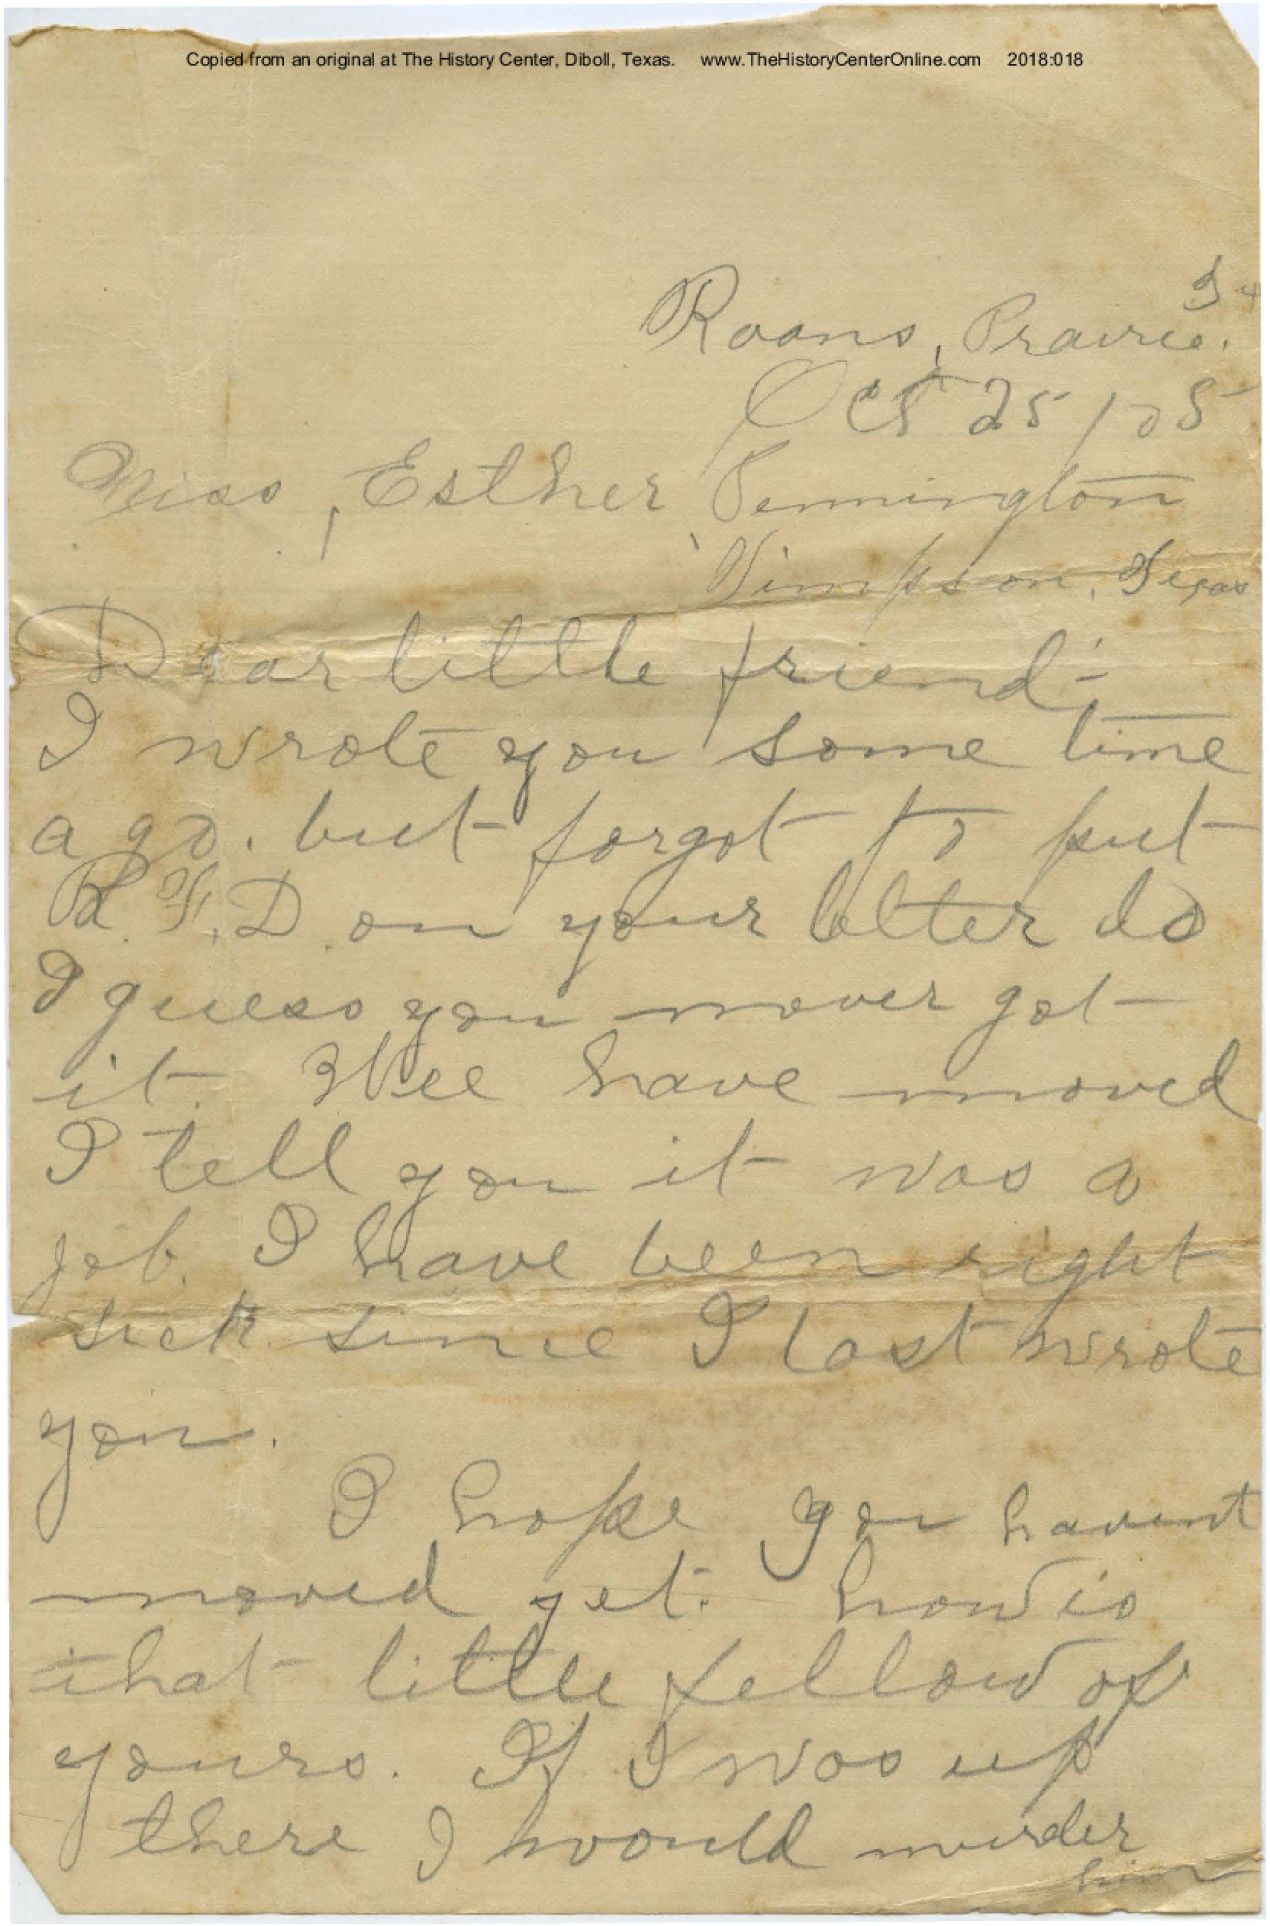 Copied from an original at The History Center, Diboll, Texas. www.TheHistoryCenterOnline.com 2018:018
Tx
Roans, Prairie.
Oct 25/05
Miss, Esther Pennington
Timpson, Texas
Dear little friend:-
I wrote you some time
ago. but forgot to put
R.F.D. on your letter so
I guess you never got
it. Wee have moved
I tell you it was a
job. I have been right
sick since I last wrote
you.
I hope you havent
moved yet. how is
that little fellow of
yours. If I was up
there I would murder
him